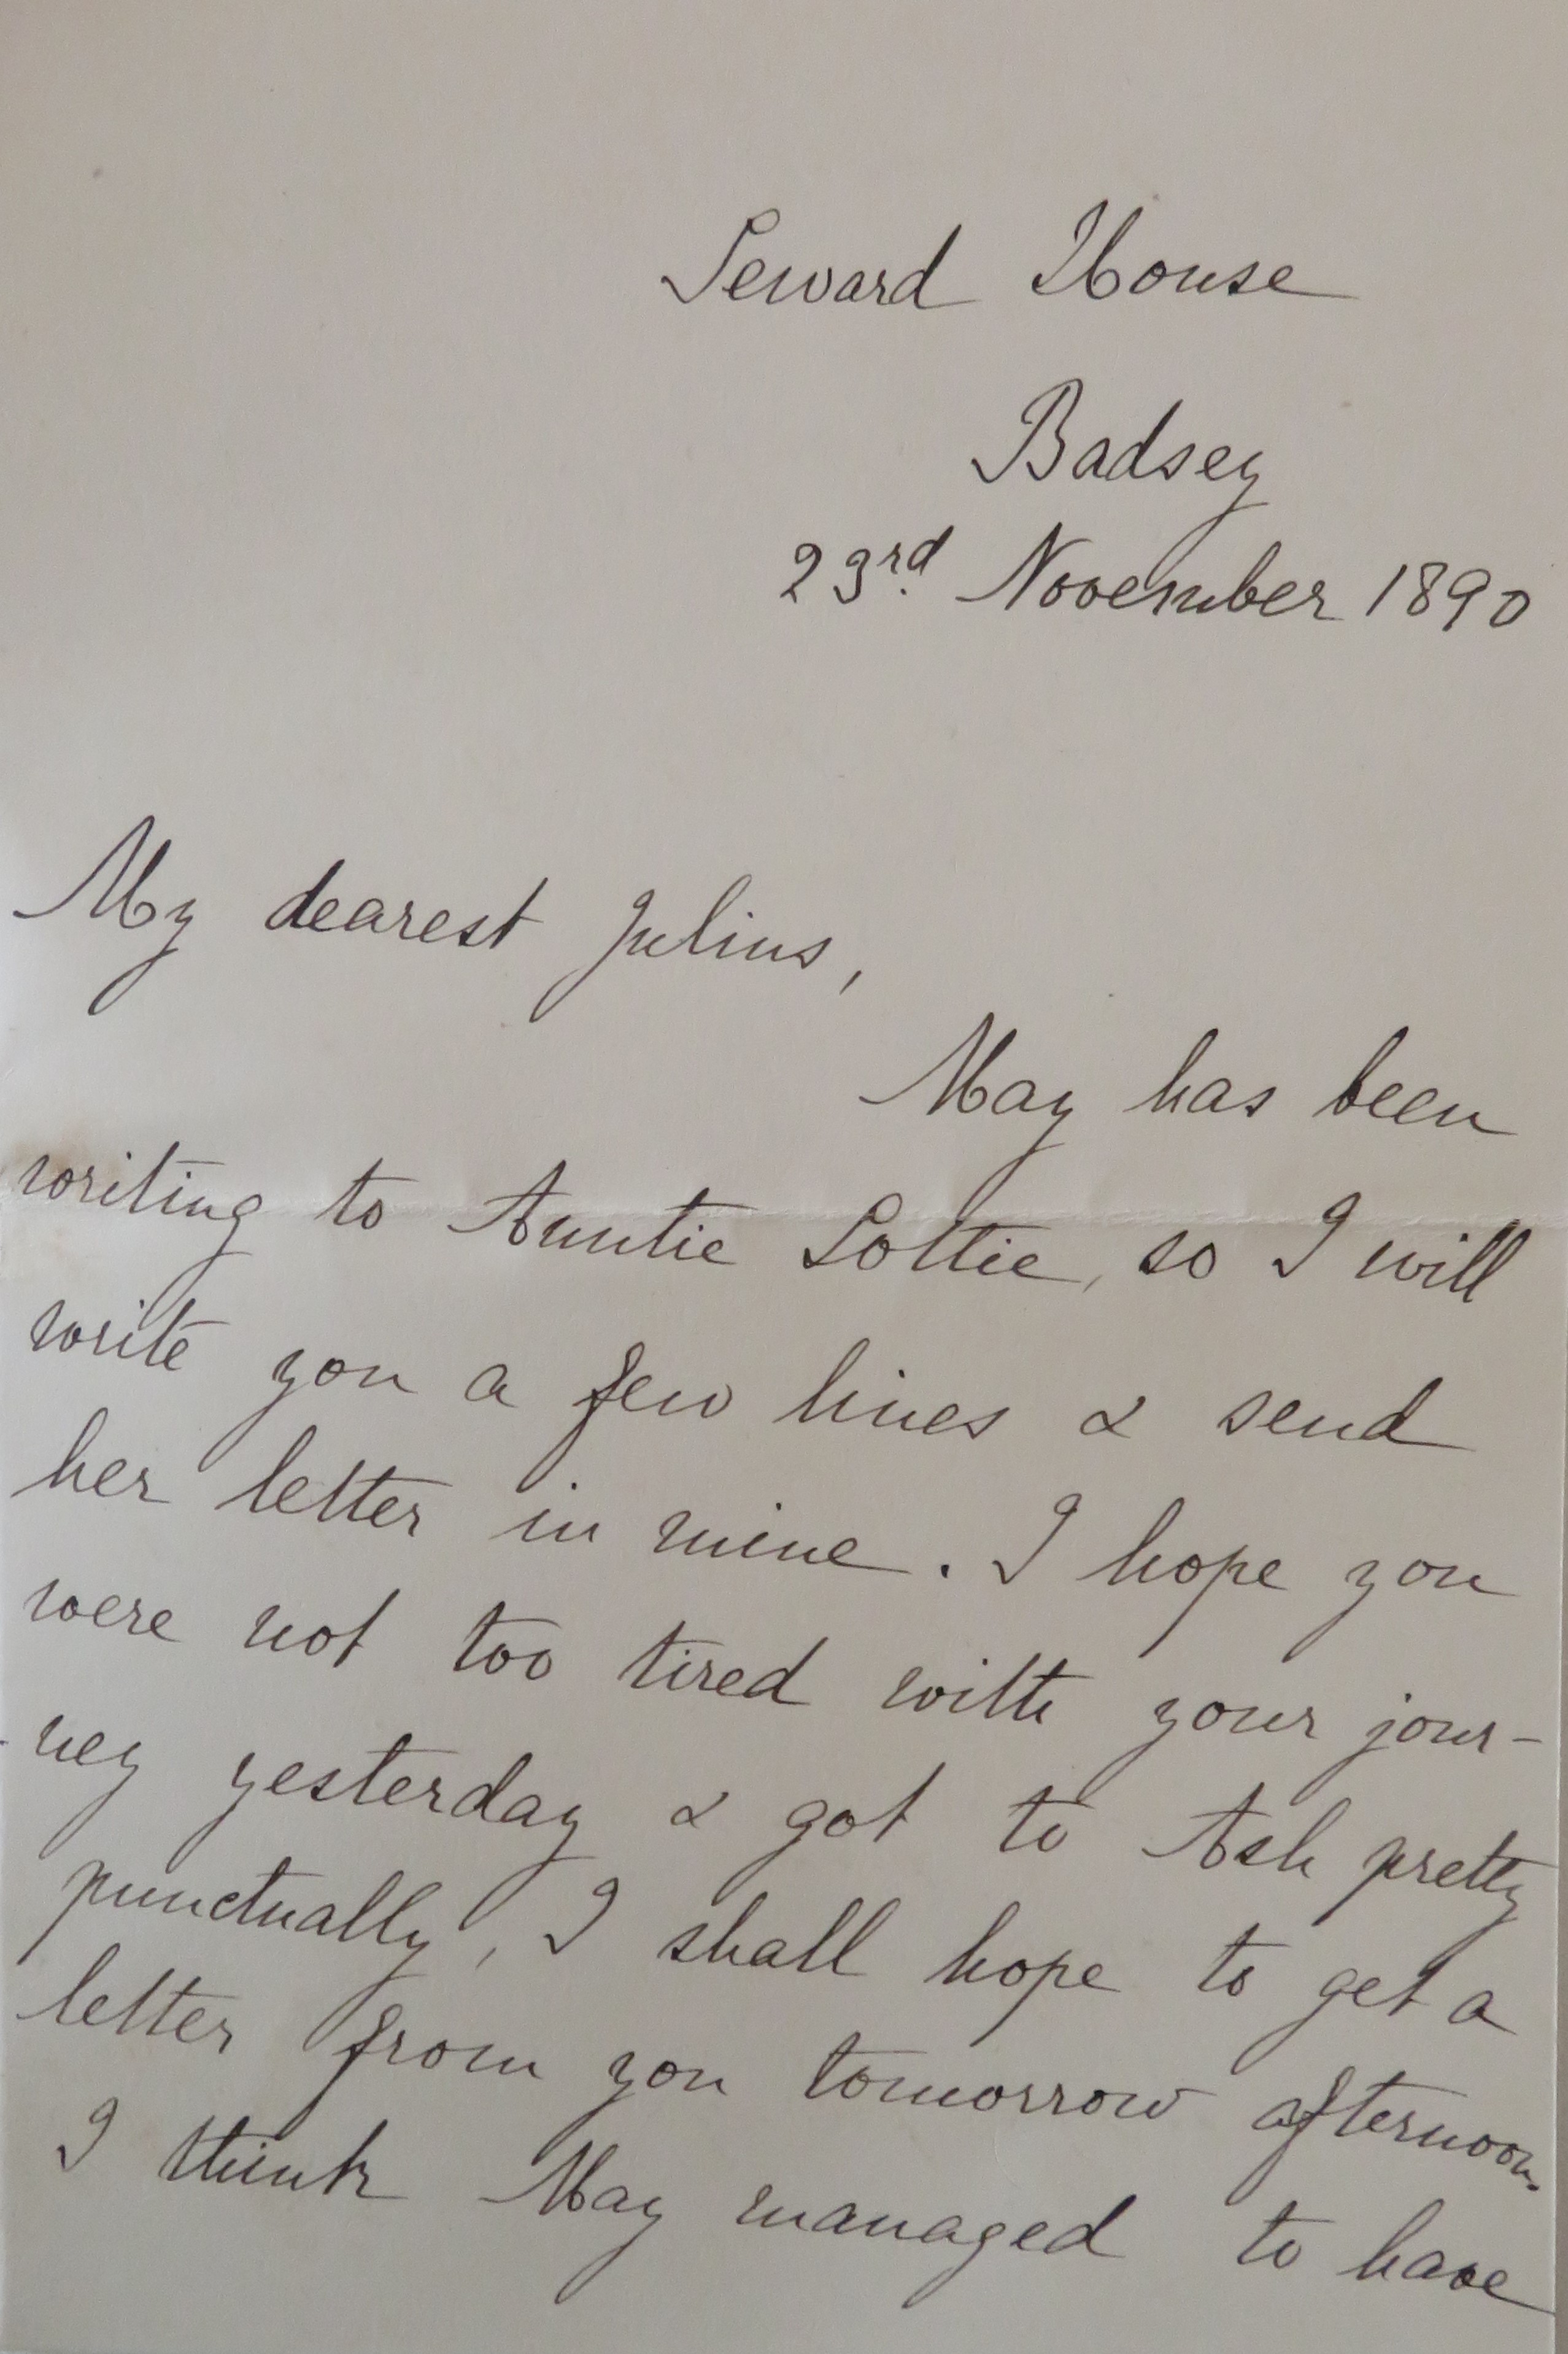 Seward House
Badsey
23rd. November 1890
My dearest Julius,
May has been
writing to Auntie Lottie, so I will
write you a few lines & send
her letter in mine. I hope you
were not too tired with your jour-
ney yesterday & got to Ash pretty
punctually, I shall hope to get a
letter from you tomorrow afternoon.
I think May managed to have